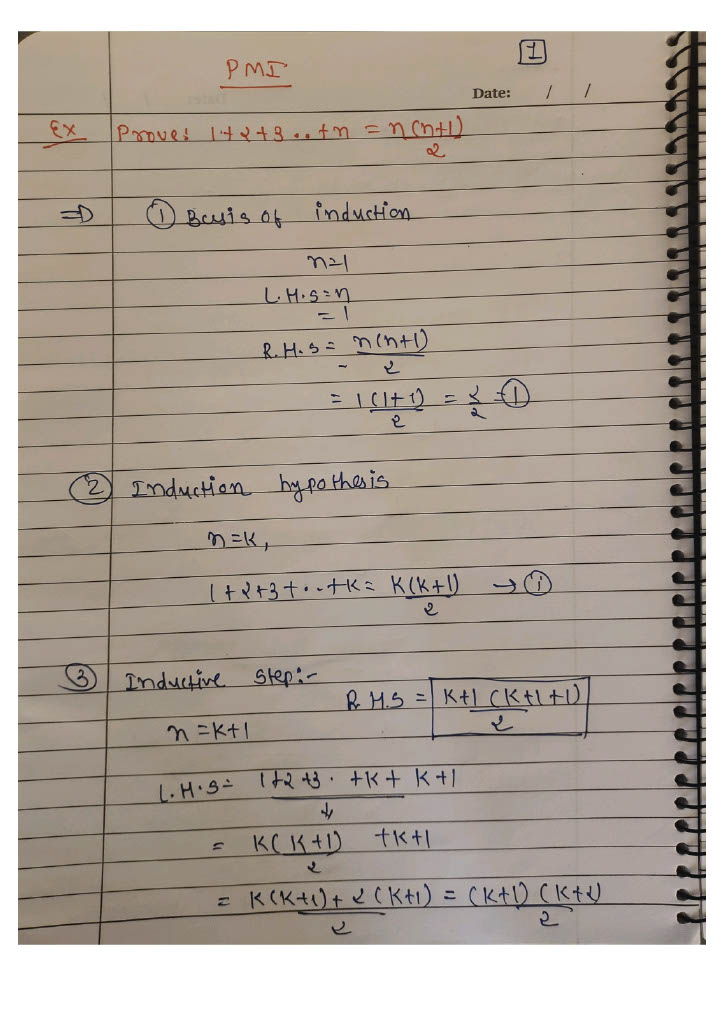 PMI
1
Date: / /
Ex Proves 1+2+3..+n = n(n+1)/2
⇒ ① Basis of induction
n=1
L.H.S=n
= 1
R.H.S = n(n+1)/2
= 1(1+1)/2 = 2/2 = ①
② Induction hypothesis
n=K,
1+2+3+..+K = K(K+1)/2 → ①
③ Inductive step:-
R.H.S = K+1 (K+1+1)/2
n=K+1
L.H.S = 1+2+3. +K+ K+1
↓
= K(K+1)/2 +K+1
= K(K+1)+2(K+1)/2 = (K+1)(K+2)/2